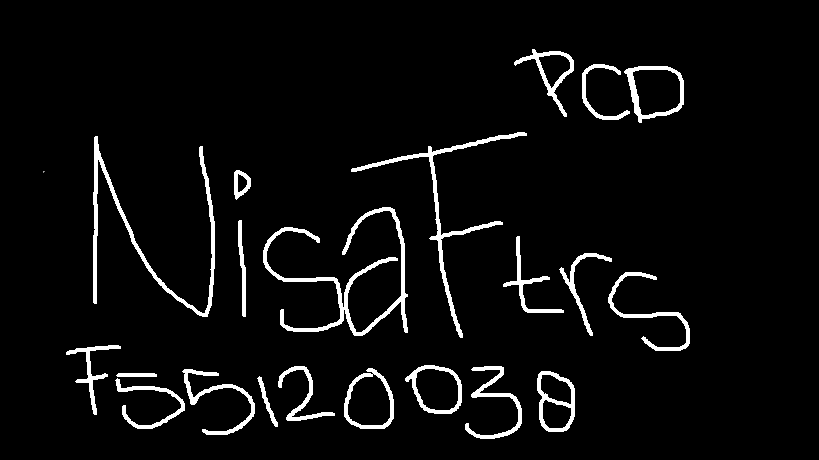 PCD
NisaFtrs
F55120038